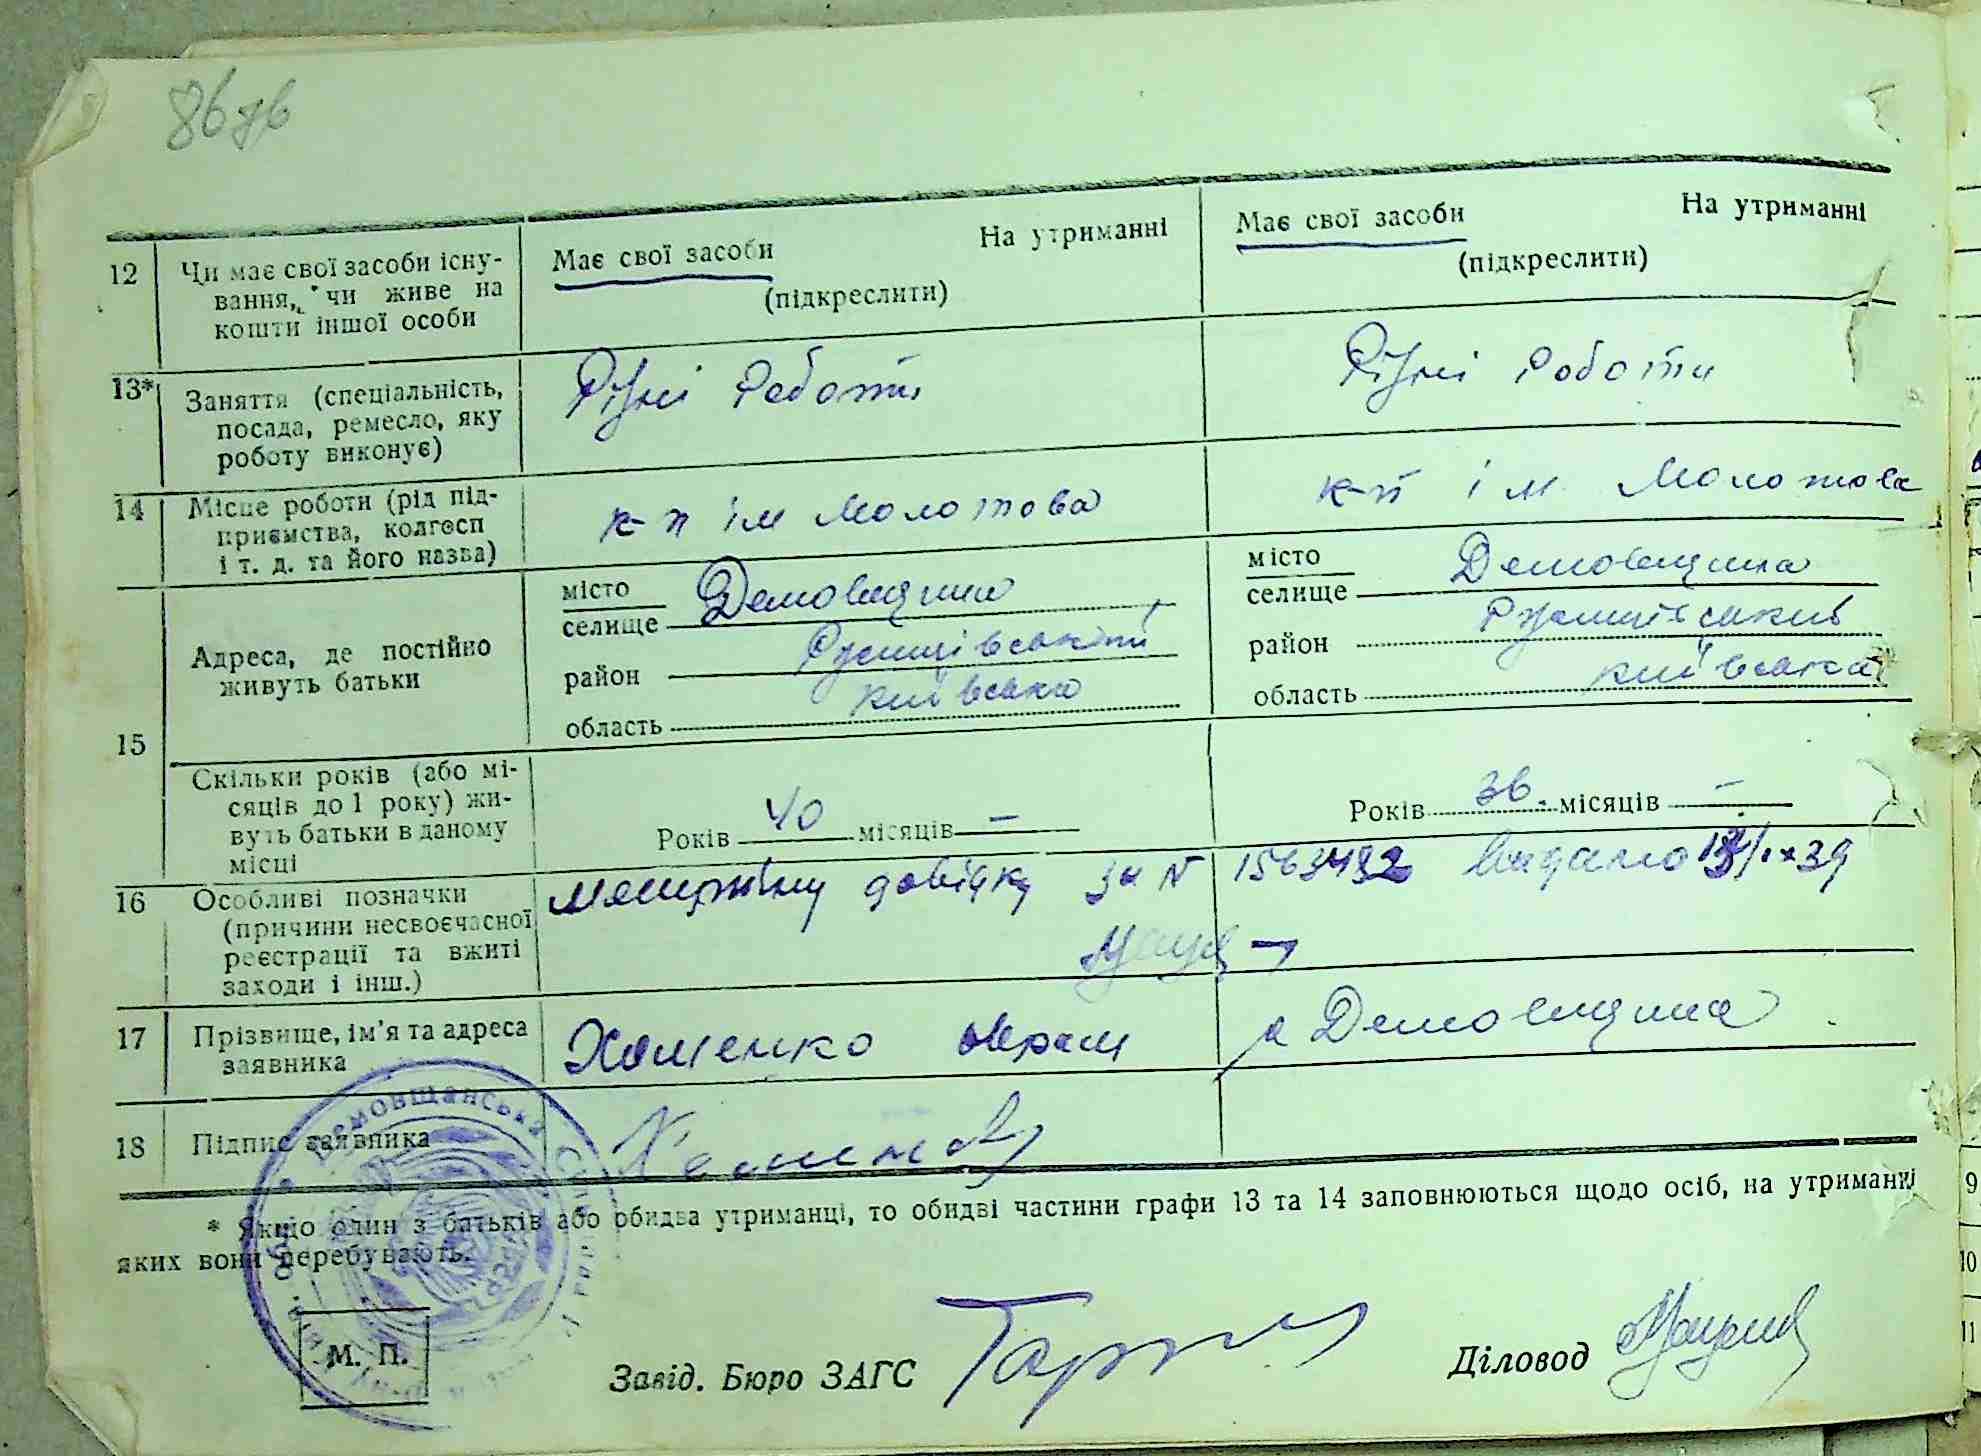 86 зв
12 Чи має свої засоби існу-
вання, чи живе на
кошти іншої особи
Має свої засоби На утриманні
(підкреслити)
Має свої засоби На утриманні
(підкреслити)
13* Заняття (спеціальність,
посада, ремесло, яку
роботу виконує)
Різні роботи
Різні роботи
14 Місце роботи (рід під-
приємства, колгосп
і т. д. та його назва)
к-п ім Молотова
к-п ім Молотова
15 Адреса, де постійно
живуть батьки
місто
селище Демовщина
район
область київська
місто
селище Демовщина
район
область київська
Скільки років (або мі-
сяців до 1 року) жи-
вуть батьки в даному
місці
Років 40 місяців —
Років 36. місяців —
16 Особливі позначки
(причини несвоєчасної
реєстрації та вжиті
заходи і інш.)
довідку за N 1563492 видано 39
17 Прізвище, ім'я та адреса
заявника
Хоменко Аврам с Демовщина
18 Підпис заявника
* Якщо один з батьків або обидва утриманці, то обидві частини графи 13 та 14 заповнюються щодо осіб, на утриманні
яких вони перебувають.
Демовщанська
М. П.
Завід. Бюро ЗАГС
Діловод
9
10
11